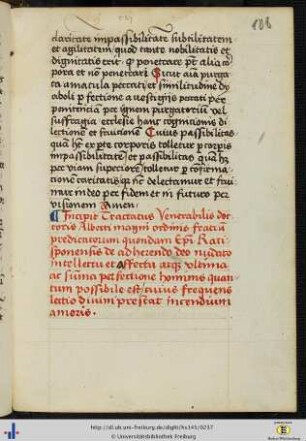 186
claritate impassibilitate subtilitatem
et agilitatem quod tante nobilitatis et
dignitatis erit qd penetrare pt alia cor
pora et nō penetrari Sicut aīa purga
ta a macula peccati et similitudine dy
aboli pfectione a vestigiis peccati per
penitenciā per ignem purgatoriū
suffragia ecclesie hanc cognicionis di
lectione et fruicione Cuius passibilitas
quā hꝫ ex pte corporis tolletur p corpis
impassibilitatē et passibilitas quā hꝫ
per viam superiorē tolletur p confirma
cionē caritatis qͣ hic delectamur et frui
mur in deo per fidem et in futuro per
visionem Amen
Incipit Tractatus Venerabilis doc
toris Alberti magni ordinis fratrū
predicatorum quondam Epī Rati
sponensis de adherendo deo nudato
intellectu et affectu atqꝫ ultima
ac sūma pfectione hominis quan
tum possibile est cuius frequens
lectio divini prestat incendium
amoris .
http://dl.ub.uni-freiburg.de/diglit/hs145/0217
© Universitätsbibliothek Freiburg